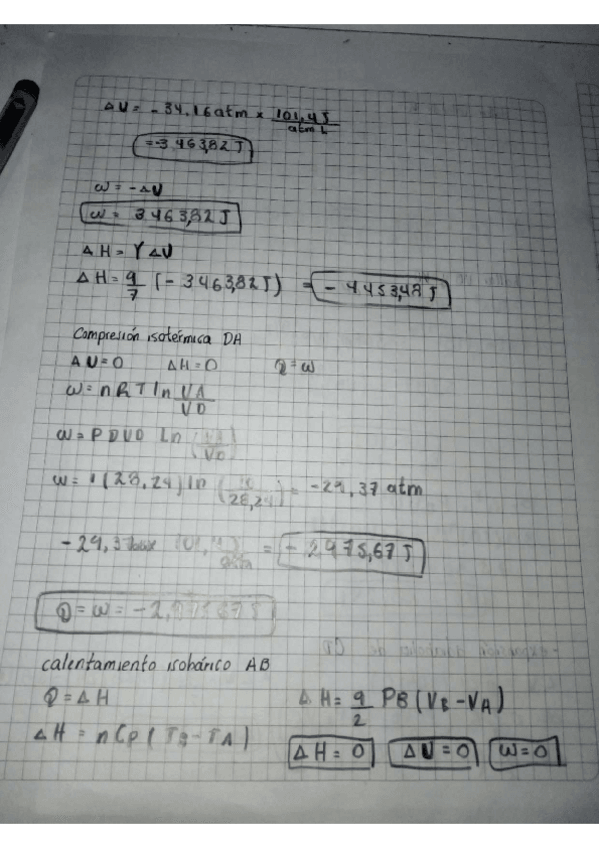 ΔU = -34,16 atm x 101,4J / atm L
= -3463,82 J
ω = -ΔU
ω = 3463,82 J
ΔH = γ ΔU
ΔH = 9/7 (-3463,82J) = -4453,48 J
Compresión isotérmica DA
ΔU=0 ΔH=0 Q=ω
ω = nRT ln VA/VD
ω = PDVD Ln (VA/VD)
ω = 1(28,24) ln (10/28,24) = -29,37 atm
= -2975,67 J
Q = ω = -2,975,67 J
calentamiento isobárico AB
Q = ΔH ΔH = 9/2 PB (VB - VA)
ΔH = nCp (TB - TA) ΔH = 0 ΔU = 0 ω=0